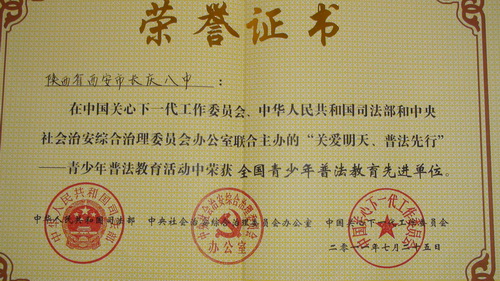 荣誉证书
陕西省西安市长庆八中：
在中国关心下一代工作委员会、中华人民共和国司法部和中央
社会治安综合治理委员会办公室联合主办的“关爱明天、普法先行”
——青少年普法教育活动中荣获 全国青少年普法教育先进单位。
中华人民共和国司法部 中央社会治安综合治理委员会办公室 中国关心下一代工作委员会
中华人民共和国司法部
办公室
中国关心下一代工作委员会
二〇一一年七月二十五日